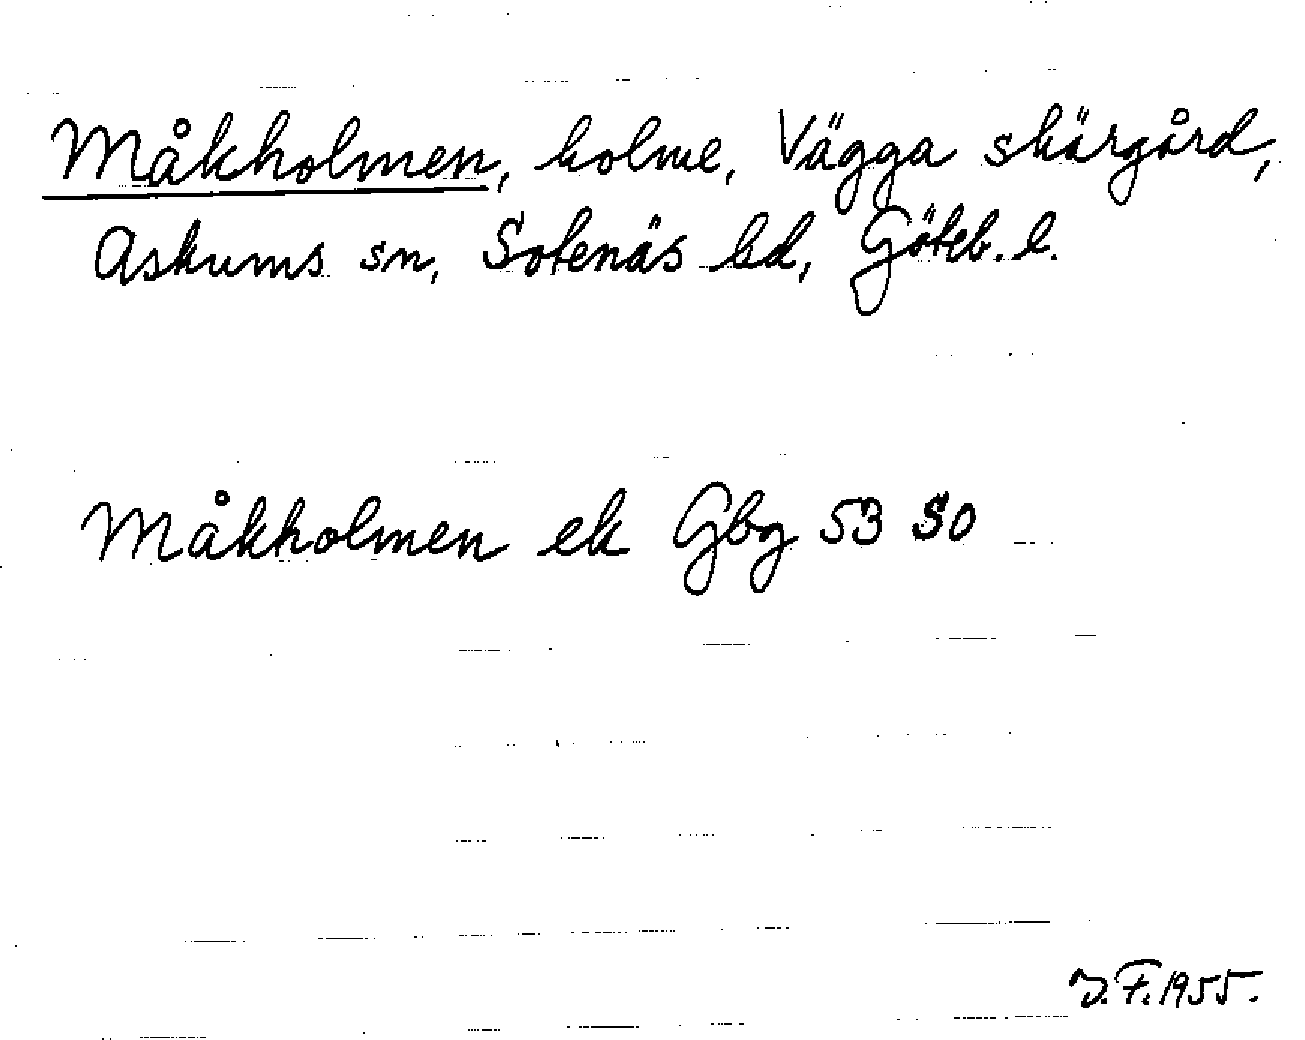 Måkholmen, holme, Vägga skärgård,
Askums sn, Sotenäs hd, Göteb. l.
Måkholmen ek Gbg 53 SO
J.F. 1955.